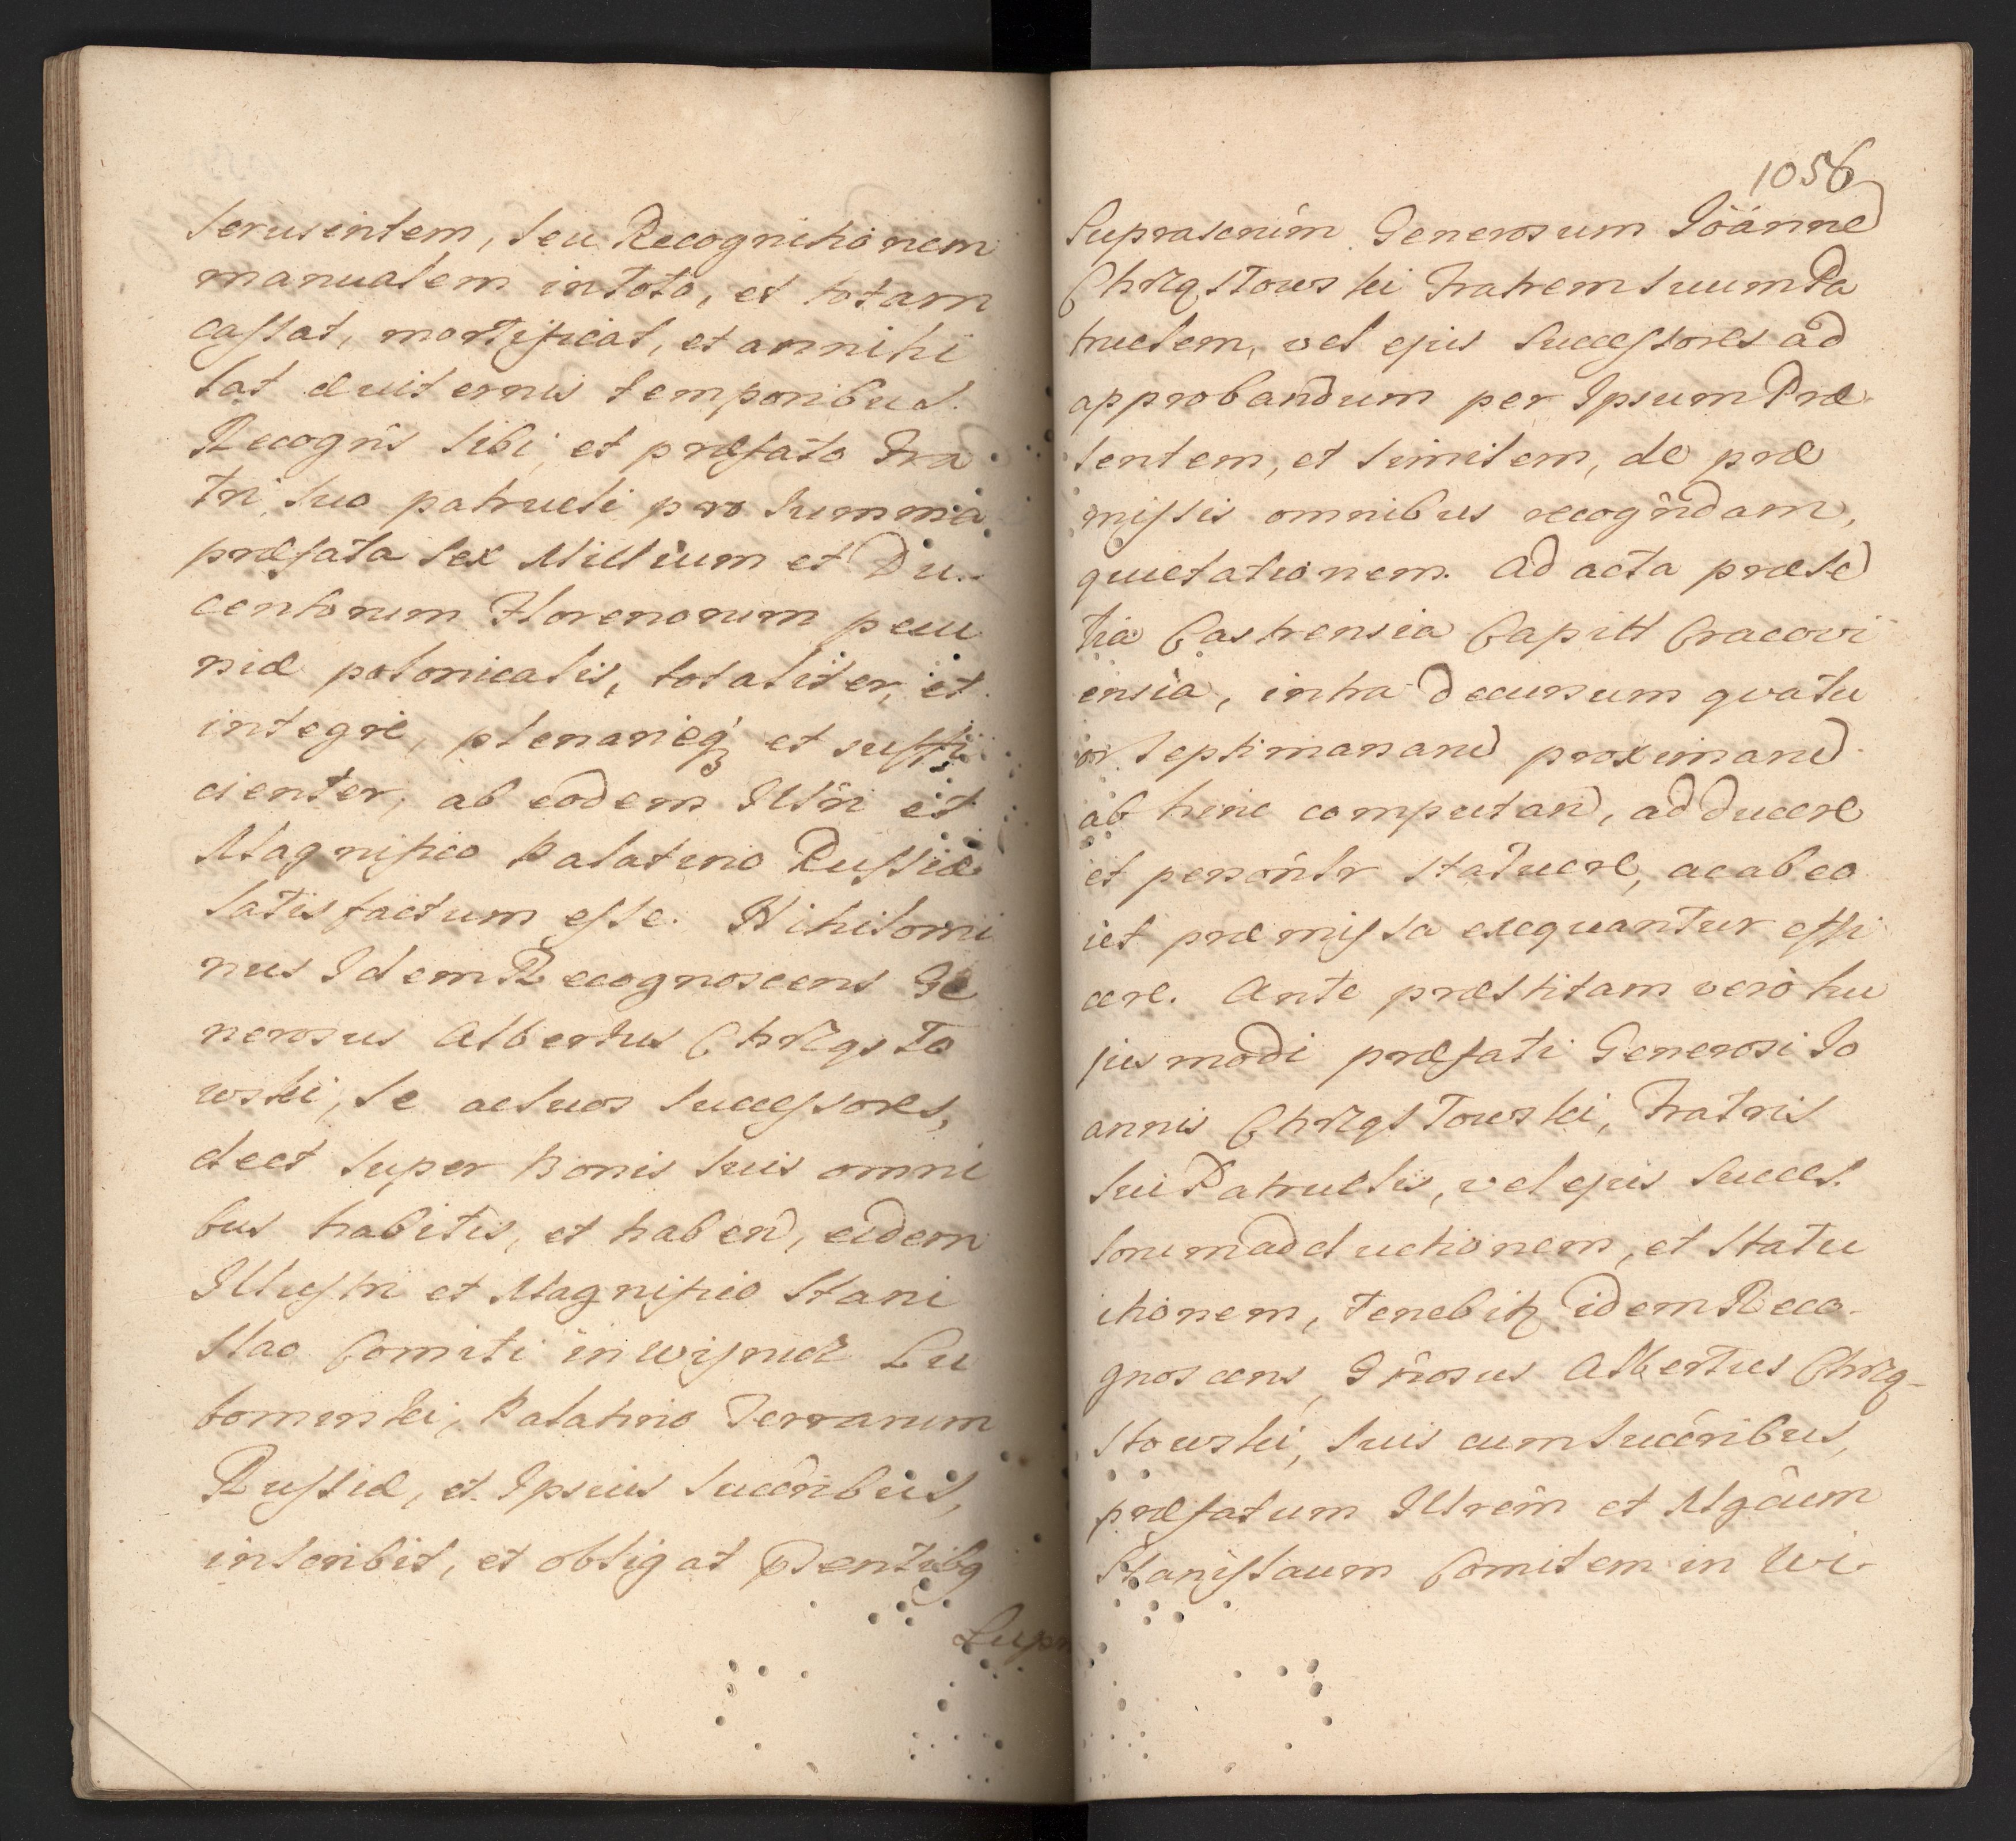 serviientem, seu Recognitionem
manualem in toto, et totam
cassat, mortificat, et annihi
lat æviternis temporibus.
Recogñs sibi, et præfato Fra
tri, suo patrueli pro Summa
præfata sex Millium et Du
centorum Florenorum pecu
niæ polonicalis, totaliter, et
integre, plenarieq, et suffi
cienter, ab eodem Illri et
Magnifico Palatino Russiæ
satisfactum esse. Nihilomi
nus Idem Recognoscens Ge
nerosus Albertus Chrzqsto
wski, se ac suos successores,
dect super Bonis suis omni
bus habitis, et haben̄, eidem
Illustri et Magnifico Stani
slao Comiti in Wisnicz Lu
bomirski, Palatino Terrarum
Russiæ, et Ipsius succ̃ribus,
inscribit, et obligat p̃sentibq
Supr
1056
Suprascrim̃ Generosum Joanne
Chrzqstowski Fratrem suum Pa
truelem, vel ejus successores ad
approbandum per Ipsum Præ
sentem, et similem, de præ
missis omnibus recogñdam,
quietationem. Ad acta præse
tia Castrensia Capitl Cracovi
ensia, intra decursum quatu
or septimanaru proximaru
ab hinc computan̄, adducere
et personlr statuere, ac ab eo
ut præmissa exequantur effi
cere. Ante præstitam vero hu
jusmodi præfati Generosi Jo
annis Chrzqstowski, Fratris
sui Patruelis, vel ejus succes
sorum adductionem, et statu
itionem, tenebitz idem Reco
gnoscens, Gñrosus Albertus Chrzq-
stowski, suis cum succ̃ribus,
præfatum Illrem̃ et Mgcũm
Stanislaum Comitem in Wi